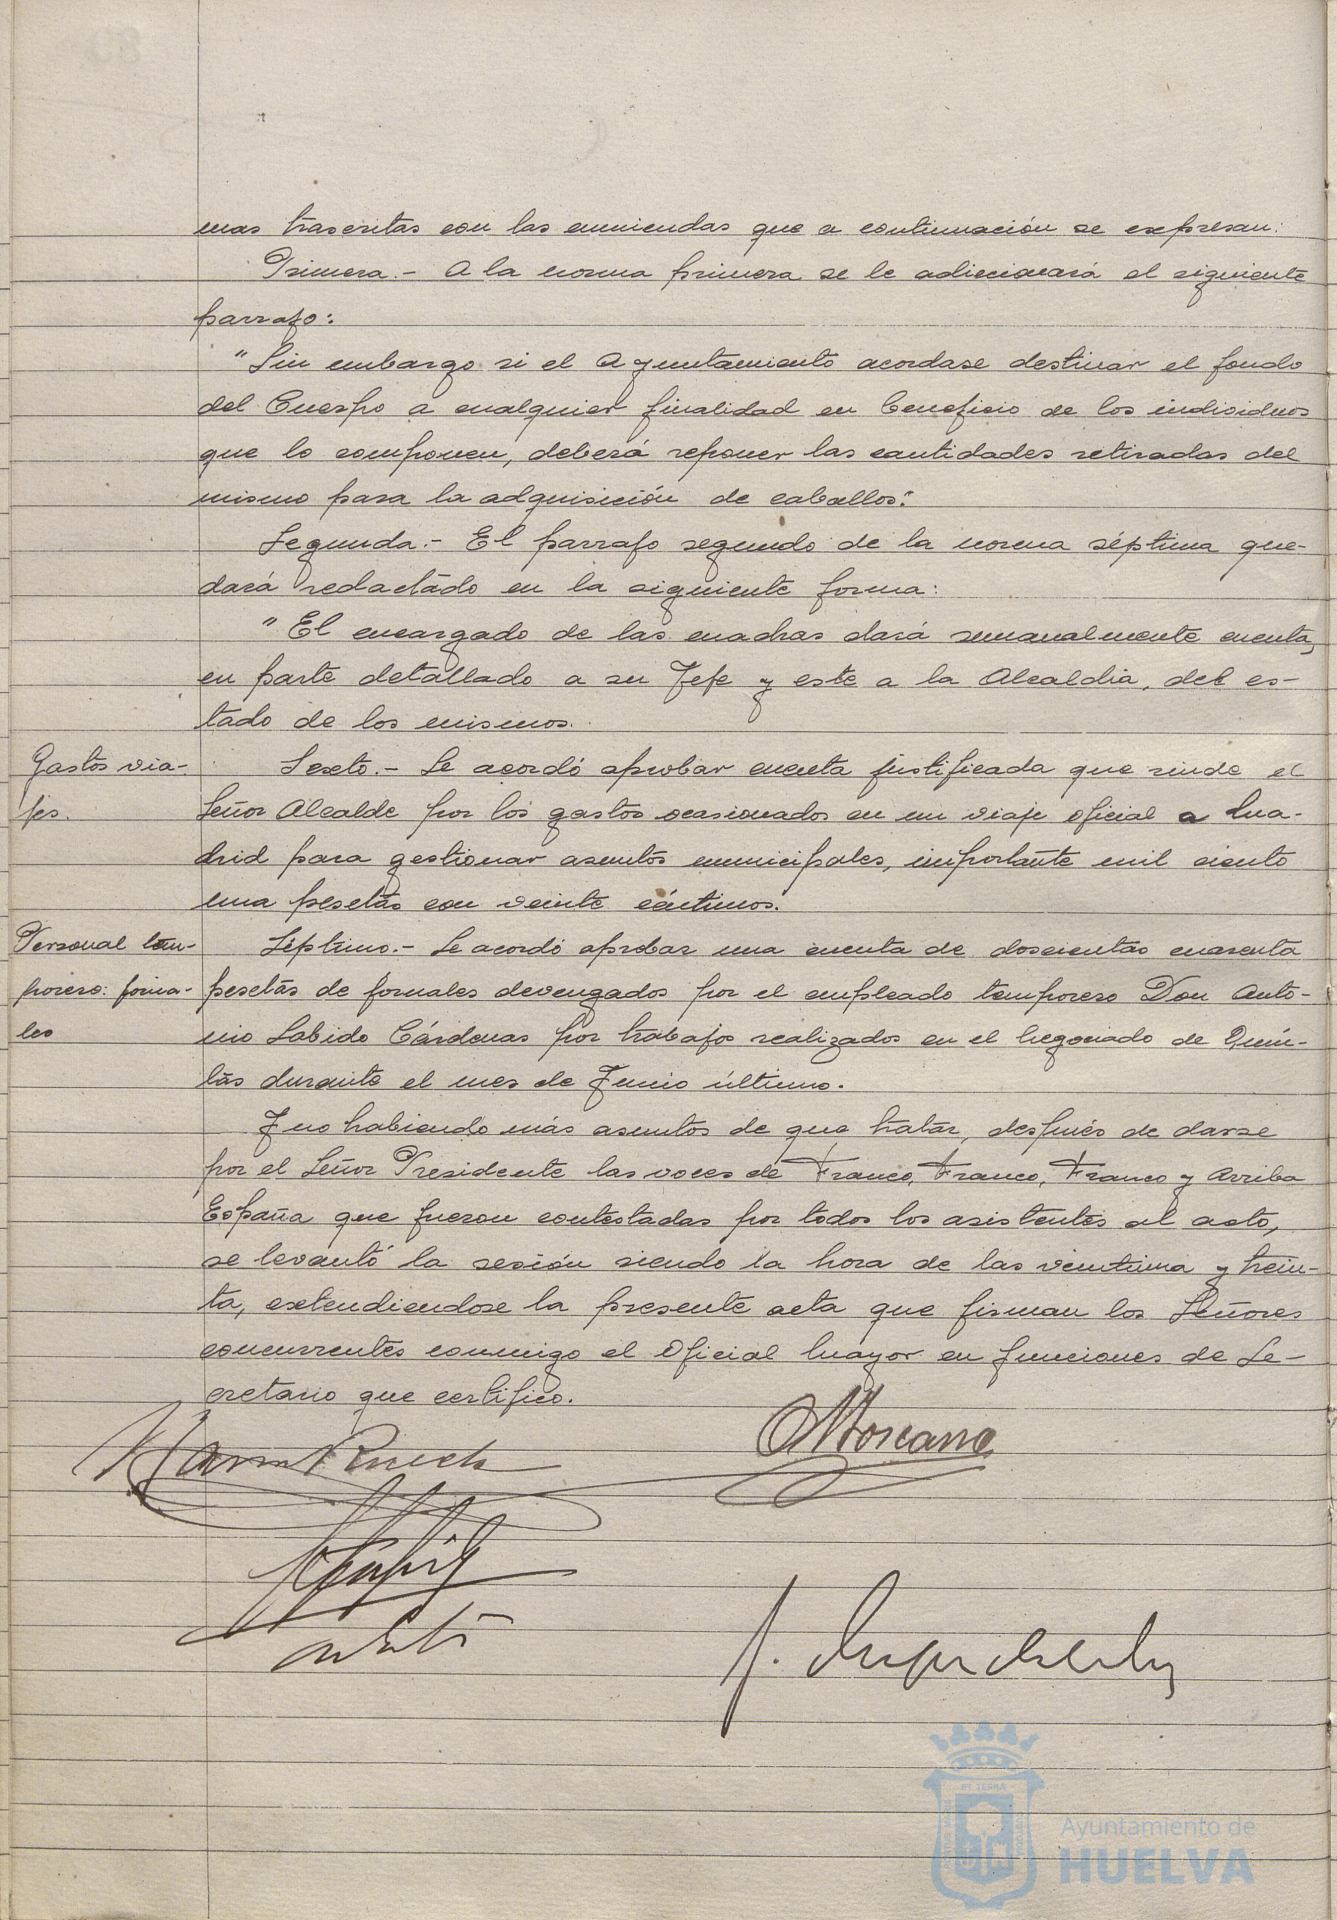 mas trascritas con las enmiendas que a continuación se expresan:
Primera.- A la norma primera se le adicionará el siguiente
parrafo:
"Sin embargo si el Ayuntamiento acordase destinar el fondo
del Cuerpo a cualquier finalidad en beneficio de los individuos
que lo componen, deberá reponer las cantidades retiradas del
mismo para la adquisición de caballos".
Segunda.- El parrafo segundo de la norma séptima que-
dará redactado en la siguiente forma:
"El encargado de las cuadras dará semanalmente cuenta,
en parte detallado a su Jefe y este a la Alcaldia, del es-
tado de los mismos.
Gastos via-
jes.
Sexto.- Se acordó aprobar cuenta justificada que rinde el
Señor Alcalde por los gastos ocasionados en un viaje oficial a Ma-
drid para gestionar asuntos municipales, importante mil ciento
una pesetas con veinte céntimos.
Personal tem-
porero: jorna-
les
Séptimo.- Se acordó aprobar una cuenta de doscientas cuarenta
pesetas de jornales devengados por el empleado temporero Don Anto-
nio Sabido Cárdenas por trabajos realizados en el Negociado de Quin-
tas durante el mes de Junio último.
Y no habiendo más asuntos de que tratar, despúes de darse
por el Señor Presidente las voces de Franco, Franco, Franco y Arriba
España que fueron contestadas por todos los asistentes al acto,
se levantó la sesión siendo la hora de las veintiuna y trein-
ta, extendiendose la presente acta que firman los Señores
concurrentes conmigo el Oficial Mayor en funciones de Se-
cretario que certifico.
Ayuntamiento de
HUELVA